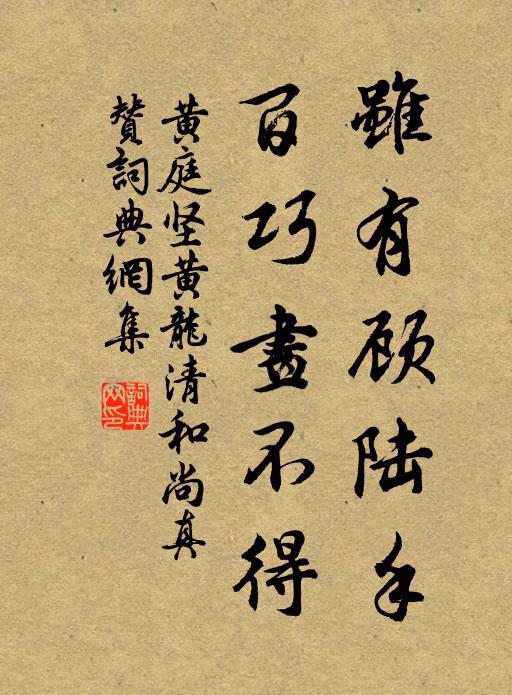 雖有顾陆手
百巧畫不得
黄庭坚黄龍清和尚真
賛詞典網集
詞典網印